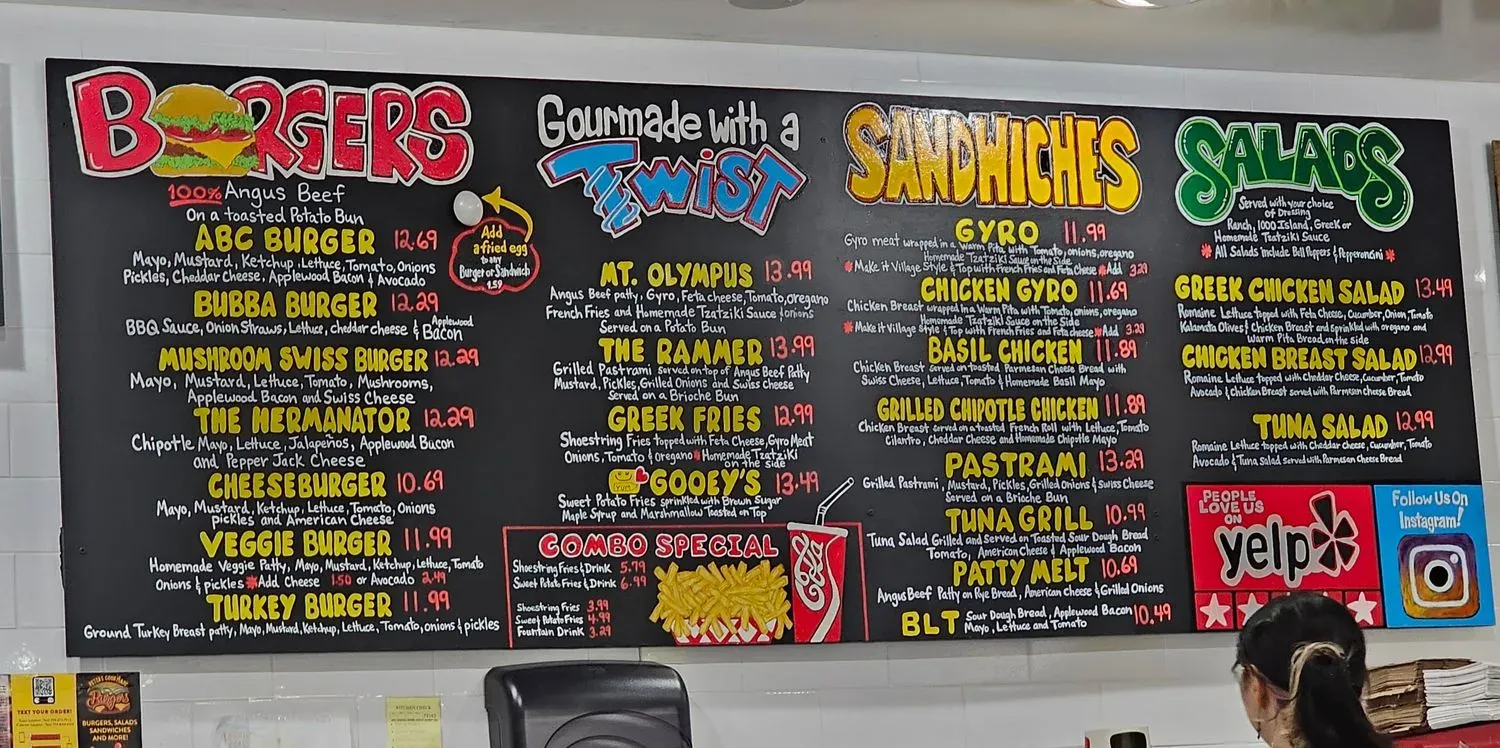 BURGERS
100% Angus Beef
On a toasted Potato Bun
ABC BURGER 12.69
Mayo, Mustard, Ketchup, Lettuce, Tomato, Onions
Pickles, Cheddar Cheese, Applewood Bacon & Avocado
BUBBA BURGER 12.29
BBQ Sauce, Onion Straws, Lettuce, cheddar cheese & Applewood Bacon
MUSHROOM SWISS BURGER 12.29
Mayo, Mustard, Lettuce, Tomato, Mushrooms,
Applewood Bacon and Swiss Cheese
THE HERMANATOR 12.29
Chipotle Mayo, Lettuce, Jalapeños, Applewood Bacon
and Pepper Jack Cheese
CHEESEBURGER 10.69
Mayo, Mustard, Ketchup, Lettuce, Tomato, Onions
pickles and American Cheese
VEGGIE BURGER 11.99
Homemade Veggie Patty, Mayo, Mustard, Ketchup, Lettuce, Tomato
Onions & pickles * Add Cheese 1.50 or Avocado 2.49
TURKEY BURGER 11.99
Ground Turkey Breast patty, Mayo, Mustard, Ketchup, Lettuce, Tomato, onions & pickles
Add
a fried egg
to any
Burger or Sandwich
1.59
Gourmade with a
TWIST
MT. OLYMPUS 13.99
Angus Beef patty, Gyro, Feta cheese, Tomato, oregano
French Fries and Homemade Tzatziki Sauce & onions
Served on a Potato Bun
THE RAMMER 13.99
Grilled Pastrami served on top of Angus Beef Patty
Mustard, Pickles, Grilled Onions and Swiss Cheese
Served on a Brioche Bun
GREEK FRIES 12.99
Shoestring Fries topped with Feta Cheese, Gyro Meat
Onions, Tomato & oregano * Homemade Tzatziki
on the side
YUM GOOEY'S 13.49
Sweet Potato Fries sprinkled with Brown Sugar
Maple Syrup and Marshmallow Toasted on Top
COMBO SPECIAL
Shoestring Fries & Drink 5.79
Sweet Potato Fries & Drink 6.99
Shoestring Fries 3.99
Sweet Potato Fries 4.99
Fountain Drink 3.29
SANDWICHES
GYRO 11.99
Gyro meat wrapped in a Warm Pita with Tomato, onions, oregano
Homemade Tzatziki Sauce on the Side
* Make it Village Style & Top with French Fries and Feta Cheese * Add 3.29
CHICKEN GYRO 11.69
Chicken Breast wrapped in a Warm Pita with Tomato, onions, oregano
Homemade Tzatziki Sauce on the Side
* Make it Village Style & Top with French Fries and Feta cheese * Add 3.29
BASIL CHICKEN 11.89
Chicken Breast served on toasted Parmesan Cheese Bread with
Swiss Cheese, Lettuce, Tomato & Homemade Basil Mayo
GRILLED CHIPOTLE CHICKEN 11.89
Chicken Breast served on a toasted French Roll with Lettuce, Tomato
Cilantro, Cheddar Cheese and Homemade Chipotle Mayo
PASTRAMI 13.29
Grilled Pastrami, Mustard, Pickles, Grilled Onions & Swiss Cheese
Served on a Brioche Bun
TUNA GRILL 10.99
Tuna Salad Grilled and Served on Toasted Sour Dough Bread
Tomato, American Cheese & Applewood Bacon
PATTY MELT 10.69
Angus Beef Patty on Rye Bread, American cheese & Grilled Onions
BLT Sour Dough Bread, Applewood Bacon 10.49
Mayo, Lettuce and Tomato
SALADS
Served with your choice
of Dressing
Ranch, 1000 Island, Greek or
Homemade Tzatziki Sauce
* All Salads include Bell Peppers & Pepperoncini *
GREEK CHICKEN SALAD 13.49
Romaine Lettuce topped with Feta Cheese, Cucumber, Onion, Tomato
Kalamata Olives & Chicken Breast and Sprinkled with oregano and
warm Pita Bread on the side
CHICKEN BREAST SALAD 12.99
Romaine Lettuce topped with Cheddar Cheese, Cucumber, Tomato
Avocado & Chicken Breast served with Parmesan Cheese Bread
TUNA SALAD 12.99
Romaine Lettuce topped with Cheddar cheese, Cucumber, Tomato
Avocado & Tuna Salad served with Parmesan Cheese Bread
PEOPLE
LOVE US
ON
yelp
Follow Us On
Instagram!
TEXT YOUR ORDER!
Burgers
BURGERS, SALADS
SANDWICHES
AND MORE!
KITCHEN CHECK